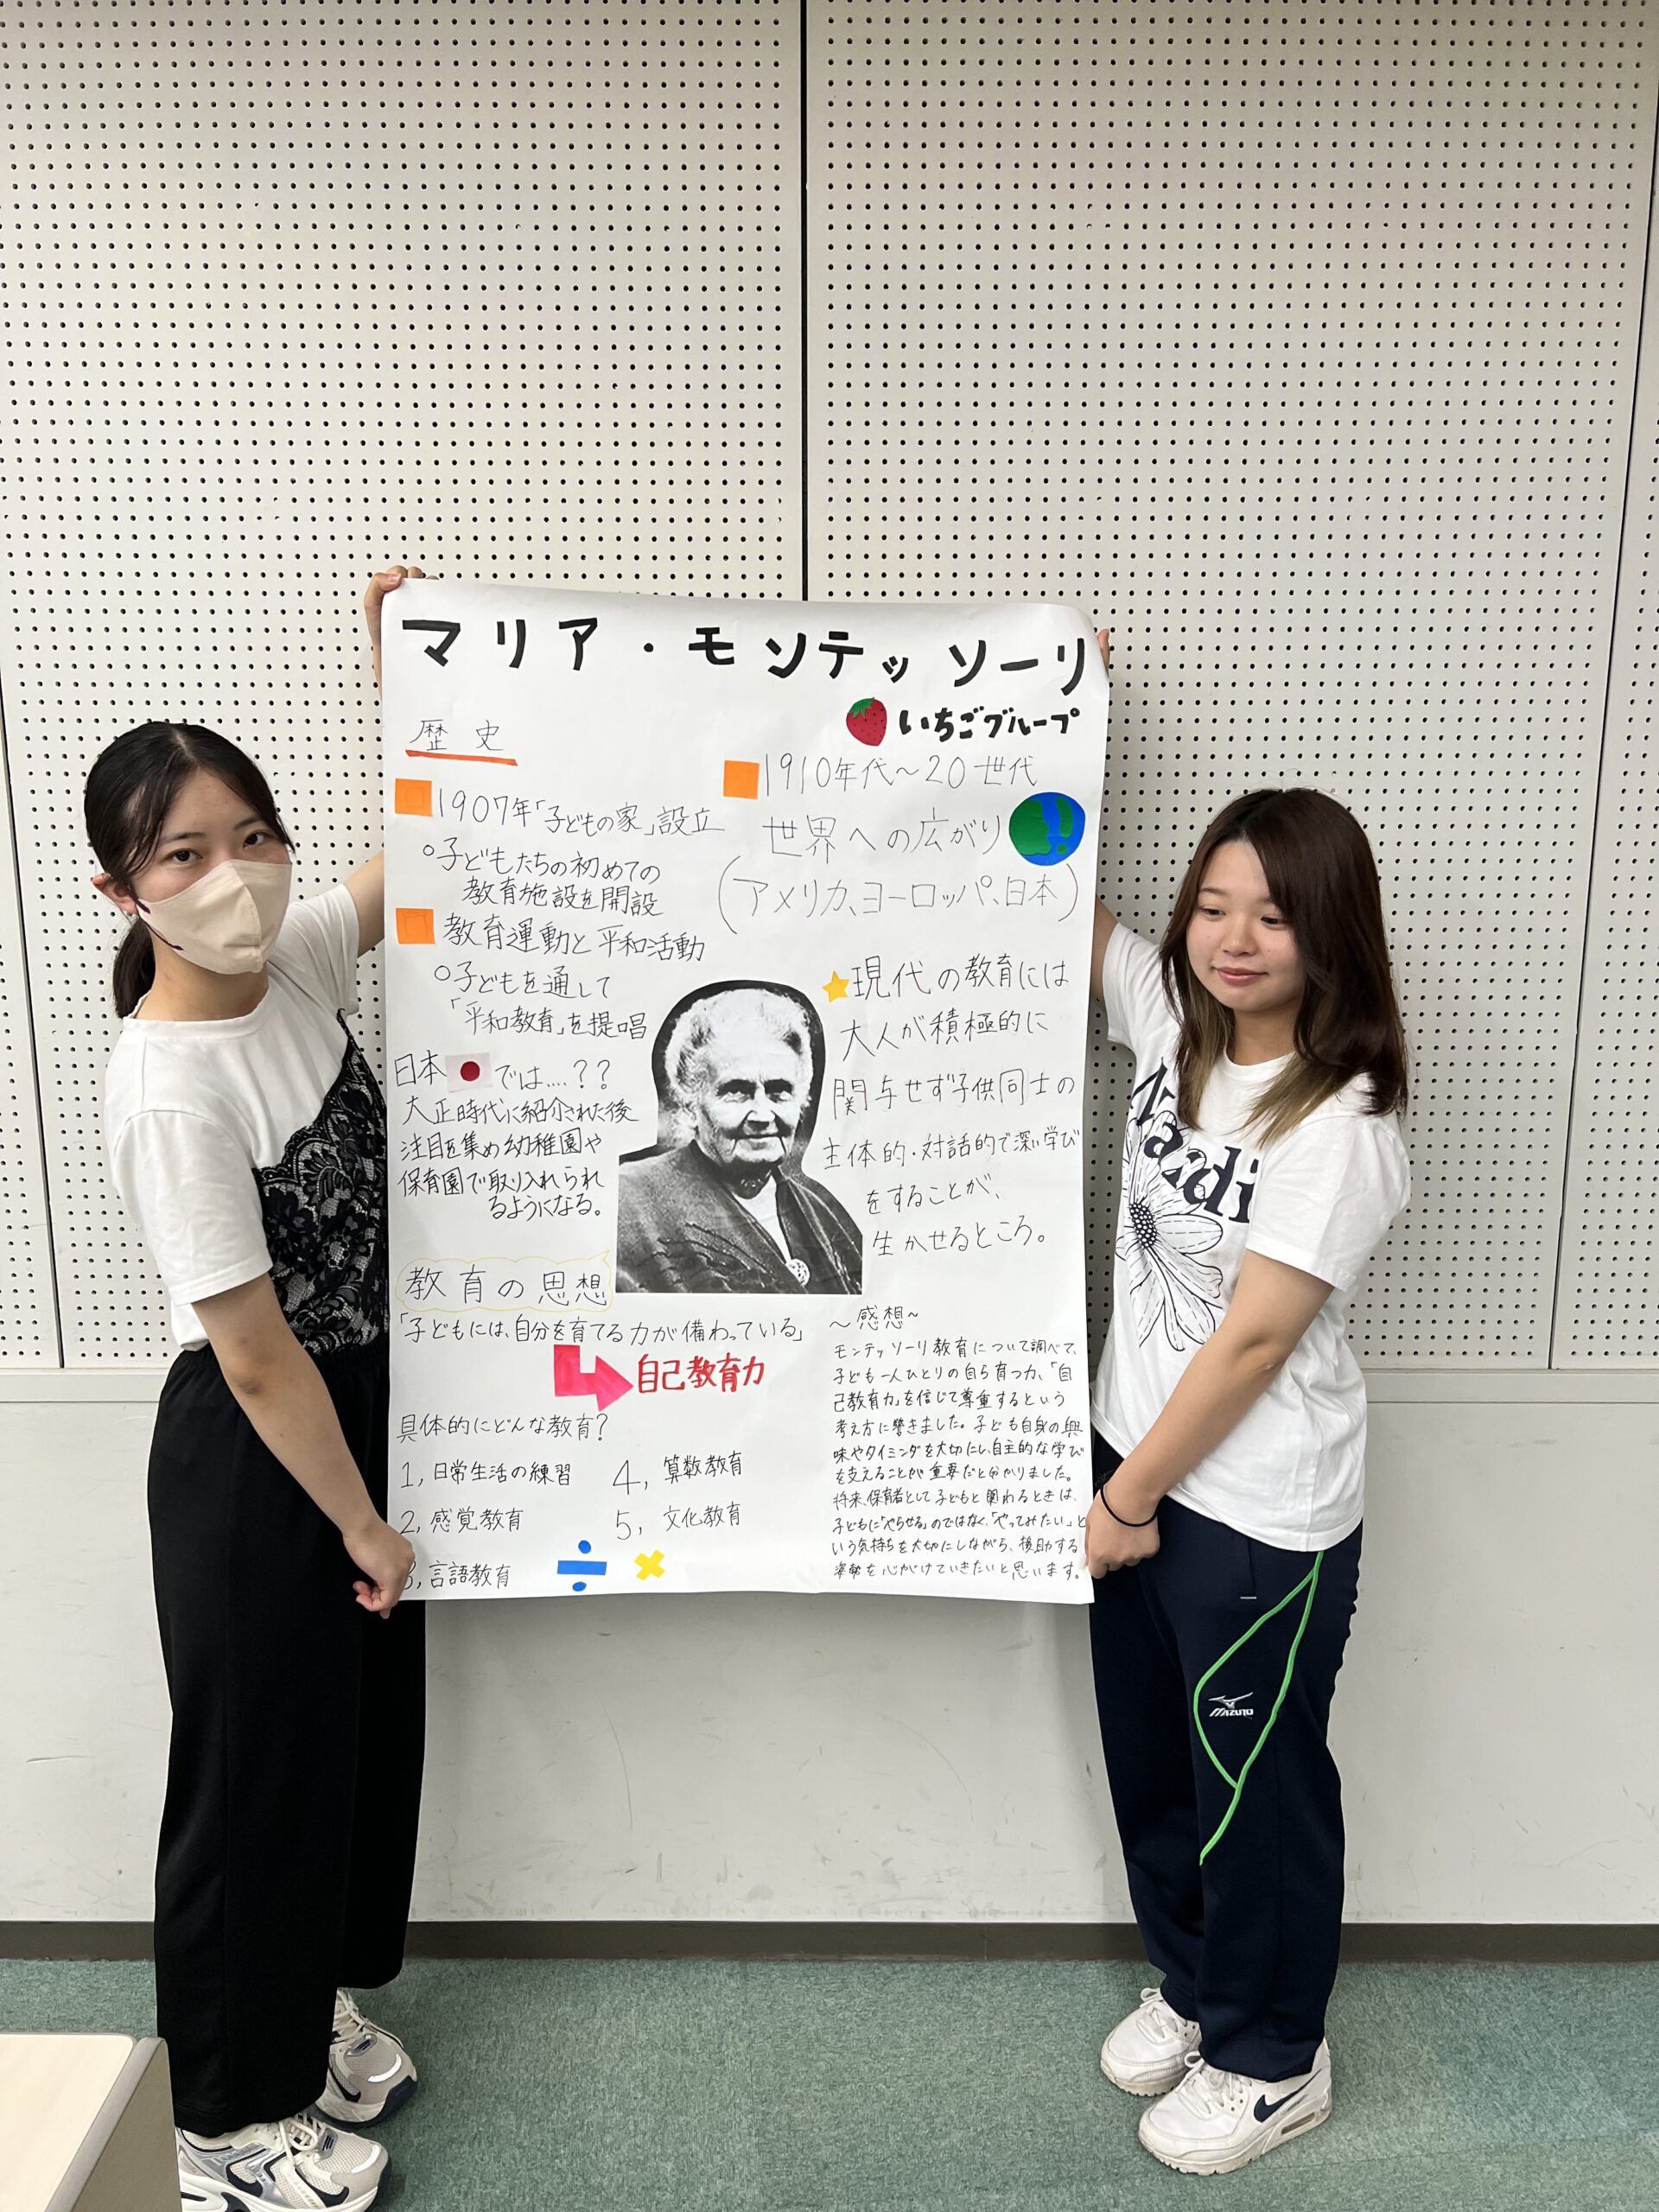 マリア・モンテッソーリ
いちごグループ
歴史
1907年「子どもの家」設立
○子どもたちの初めての
教育施設を開設
教育運動と平和活動
○子どもを通して
「平和教育」を提唱
日本 では....??
大正時代に紹介された後
注目を集め幼稚園や
保育園で取り入れられ
るようになる。
1910年代~20世代
世界への広がり
(アメリカ、ヨーロッパ、日本)
現代の教育には
大人が積極的に
関与せず子供同士の
主体的・対話的で深い学び
をすることが、
生かせるところ。
教育の思想
「子どもには、自分を育てる力が備わっている」
自己教育力
具体的にどんな教育?
1, 日常生活の練習
2, 感覚教育
3, 言語教育
4, 算数教育
5, 文化教育
~感想~
モンテッソーリ教育について調べて、
子ども一人ひとりの自ら育つ力、「自
己教育力」を信じて尊重するという
考え方に驚きました。子ども自身の興
味やタイミングを大切にし、自主的な学び
を支えることが重要だと分かりました。
将来、保育者として子どもと関わるときは、
子どもに「やらせる」のではなく、「やってみたい」と
いう気持ちを大切にしながら、援助する
姿勢を心がけていきたいと思います。
MIZUNO